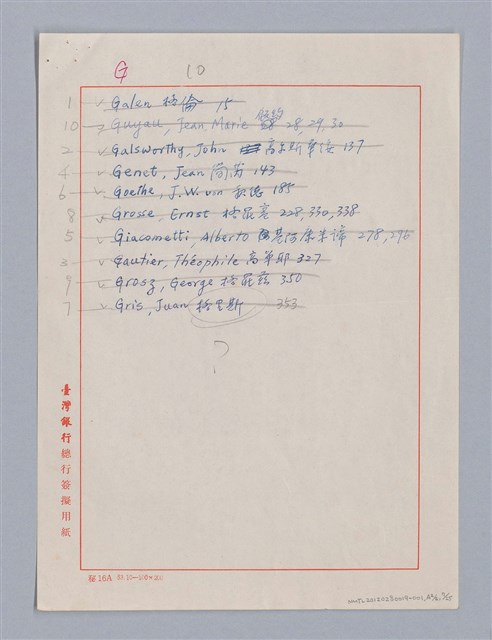 G 10
1 Galen 格倫 15
10 Guyau, Jean Marie 28, 29, 30
2 Galsworthy, John 高尔斯華綏 137
4 Genet, Jean 143
6 Goethe, J.W. von 歌德 185
8 Grosse, Ernst 格羅塞 228, 330, 338
5 Giacometti, Alberto 278, 296
3 Gautier, Théophile 高華耶 327
9 Grosz, George 格羅茲 350
7 Gris, Juan 格里斯 353
?
臺灣銀行總行簽擬用紙
秘16A